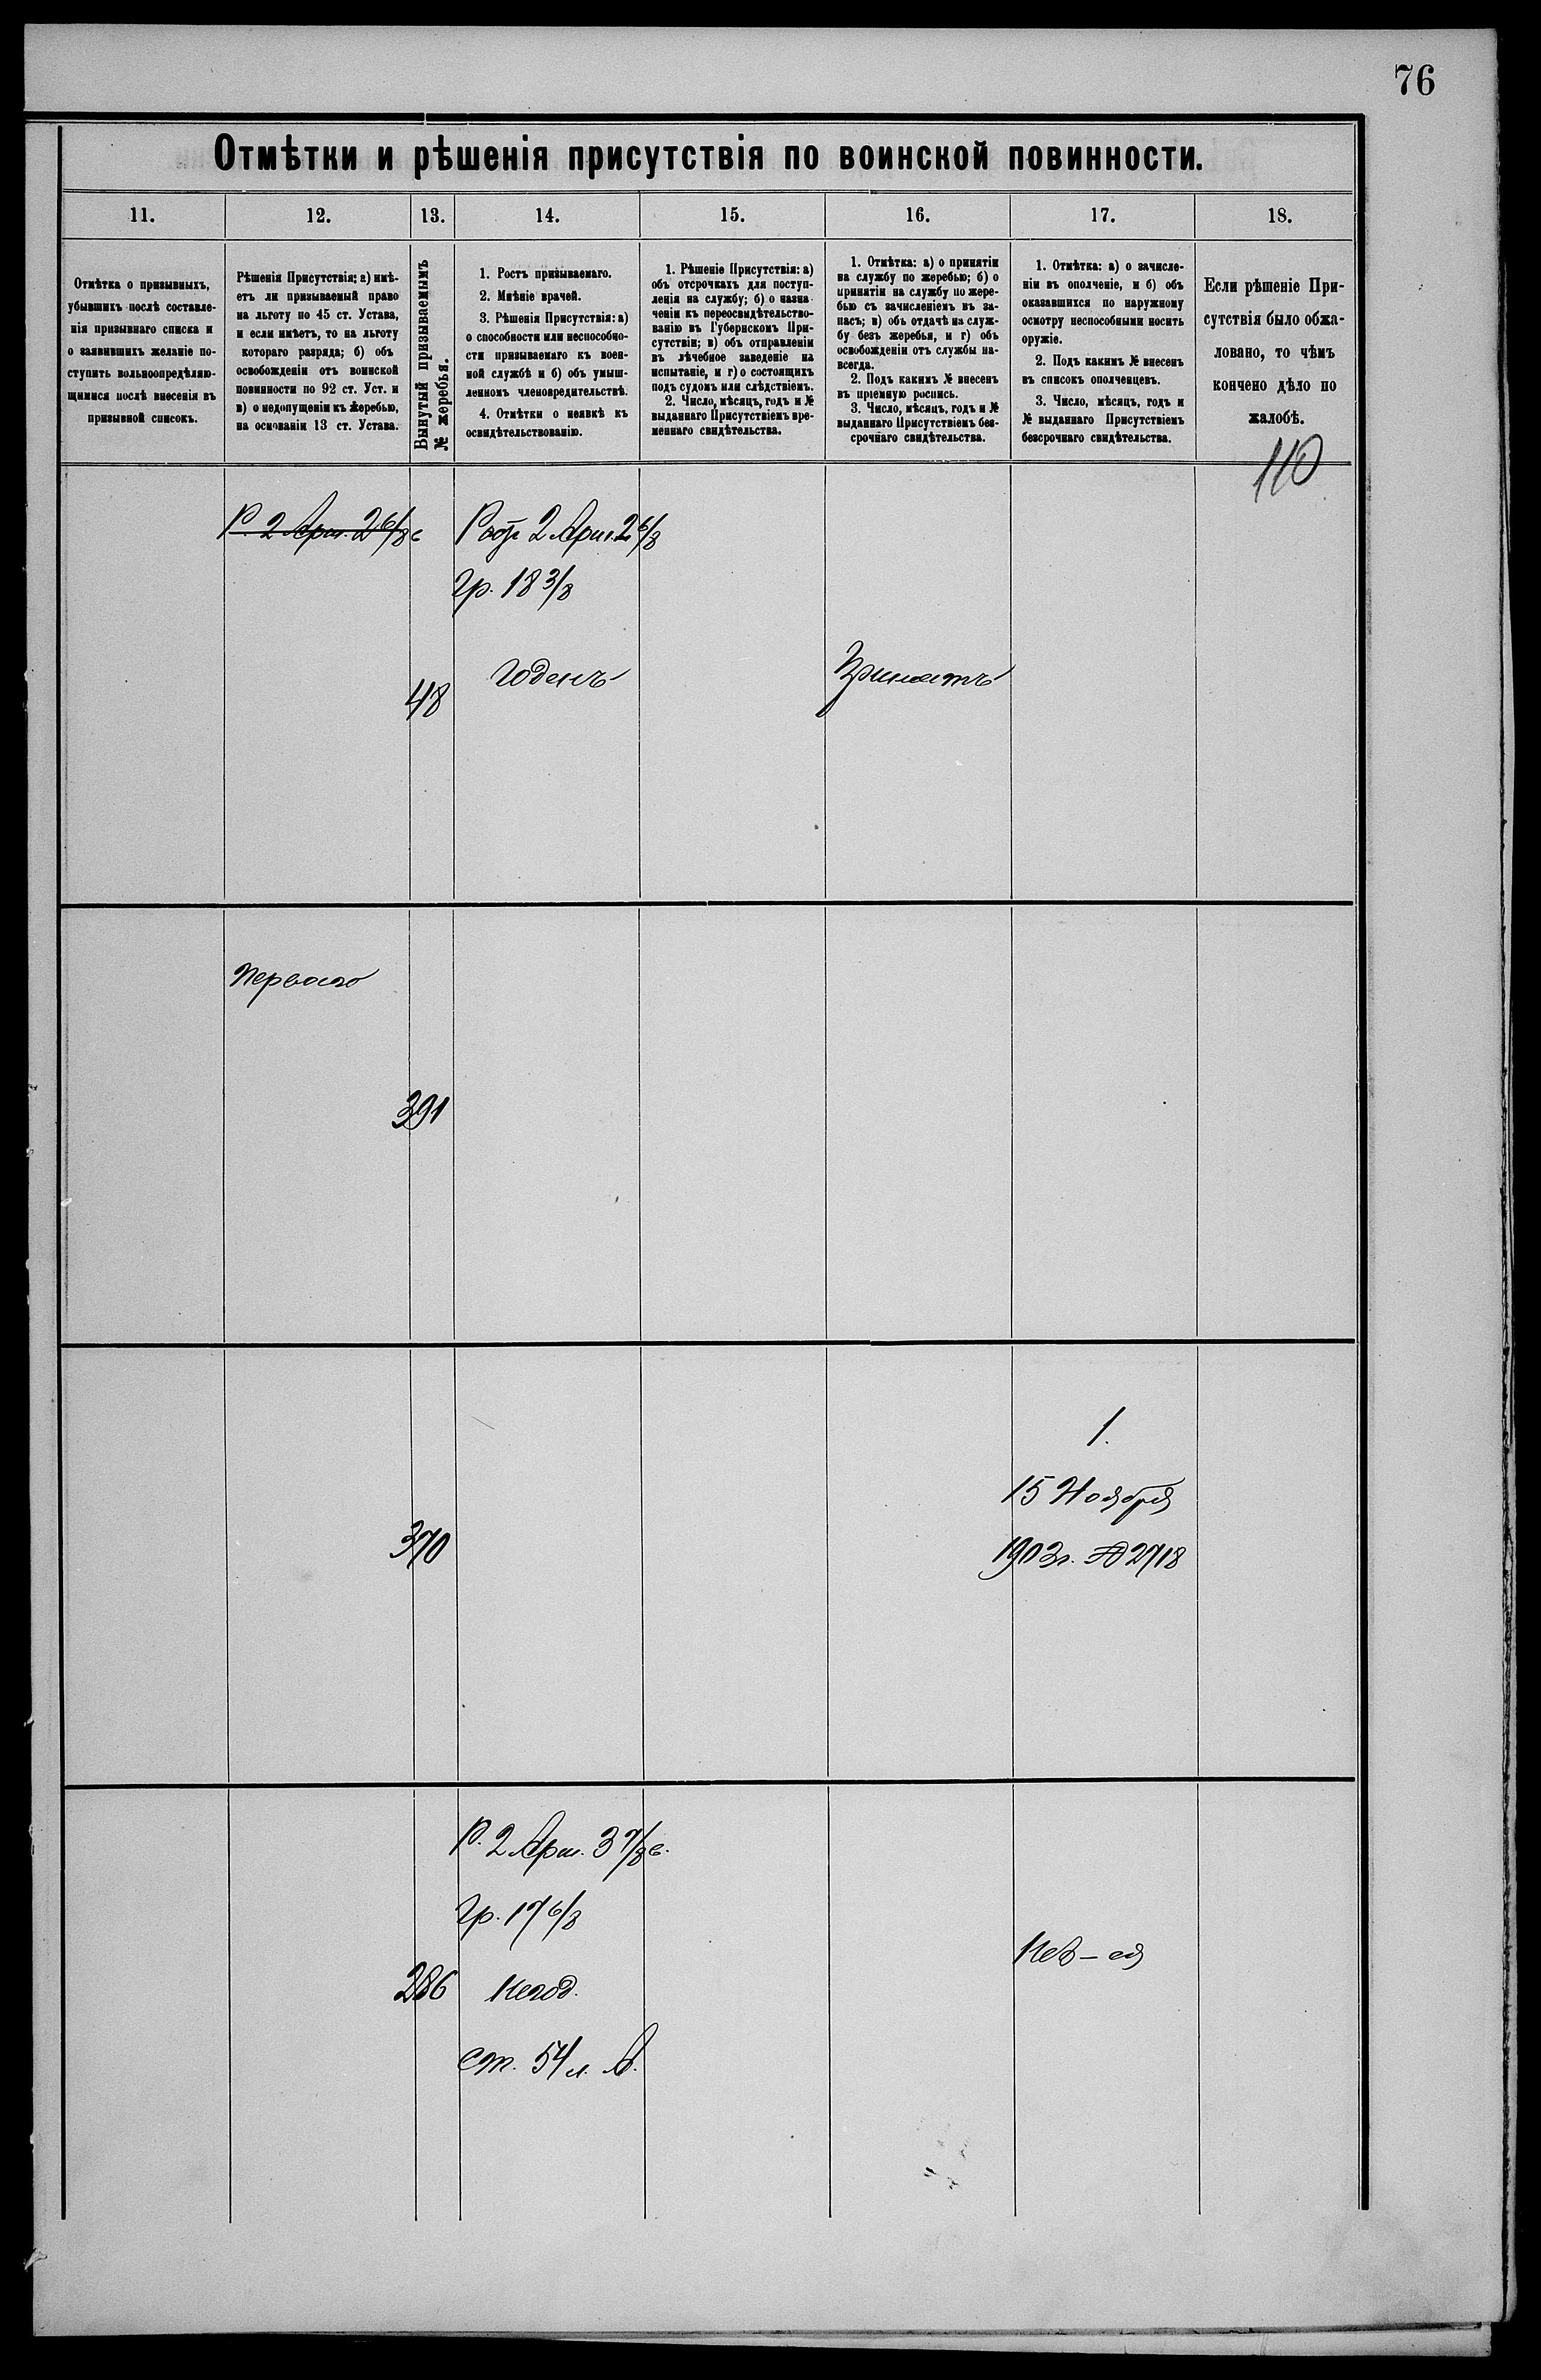 76
Отмѣтки и рѣшенія присутствія по воинской повинности.
11.
12.
13.
14.
15.
16.
17.
18.
Отмѣтка о призывныхъ,
убывшихъ послѣ составле-
нія призывнаго списка и
о заявившихъ желаніе по-
ступить вольноопредѣляю-
щимися послѣ внесенія въ
призывной списокъ.
Рѣшенія Присутствія: а) имѣ-
етъ ли призываемый право
на льготу по 45 ст. Устава,
и если имѣетъ, то на льготу
котораго разряда; б) объ
освобожденіи отъ воинской
повинности по 92 ст. Уст. и
в) о недопущеніи къ жеребью,
на основаніи 13 ст. Устава.
Вынутый призываемымъ
№ жеребья.
1. Ростъ призываемаго.
2. Мнѣніе врачей.
3. Рѣшенія Присутствія: а)
о способности или неспособно-
сти призываемаго къ воен-
ной службѣ и б) объ умыш-
ленномъ членовредительствѣ.
4. Отмѣтки о неявкѣ къ
освидѣтельствованію.
1. Рѣшеніе Присутствія: а)
объ отсрочкахъ для поступ-
ленія на службу; б) о назна-
ченіи къ переосвидѣтельство-
ванію въ Губернскомъ При-
сутствіи; в) объ отправленіи
въ лѣчебное заведеніе на
испытаніе, и г) о состоящихъ
подъ судомъ или слѣдствіемъ.
2. Число, мѣсяцъ, годъ и №
выданнаго Присутствіемъ вре-
меннаго свидѣтельства.
1. Отмѣтка: а) о принятіи
на службу по жеребью; б) о
принятіи на службу по жере-
бью съ зачисленіемъ въ за-
пасъ; в) объ отдачѣ на служ-
бу безъ жеребья, и г) объ
освобожденіи отъ службы на-
всегда.
2. Подъ какимъ № внесенъ
въ пріемную роспись.
3. Число, мѣсяцъ, годъ и №
выданнаго Присутствіемъ без-
срочнаго свидѣтельства.
1. Отмѣтка: а) о зачисле-
ніи въ ополченіе, и б) объ
оказавшихся по наружному
осмотру неспособными носить
оружіе.
2. Подъ какимъ № внесенъ
въ списокъ ополченцевъ.
3. Число, мѣсяцъ, годъ и
№ выданнаго Присутствіемъ
безсрочнаго свидѣтельства.
Если рѣшеніе При-
сутствія было обжа-
ловано, то чѣмъ
кончено дѣло по
жалобѣ.
110
Р. 2 Арш. 2 6/8 в
2 Арш. 2 6/8
Гр. 18 3/8
48
Годенъ
Принятъ
Перваго
391
370
1.
15 Ноября
1903г. № 2718
Р. 2 Арш. 3 7/8 в.
Гр. 17 6/8
286
Негод.
ст. 54 л. А.